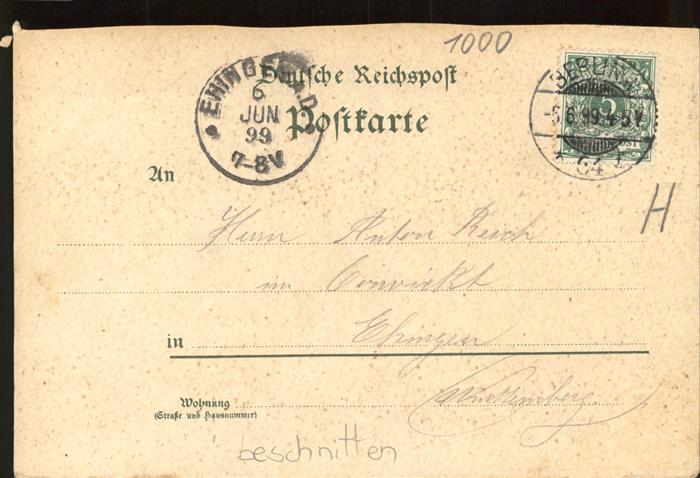 1000
Deutsche Reichspost
Postkarte
EHINGEN A.D.
6
JUN
99
7-8V
BERLIN
-5.6.99.4-5V
* 64
5
An
H
Herrn Anton Reich
im Convickt
in Ehingen
Württemberg.
Wohnung
(Straße und Hausnummer)
beschnitten